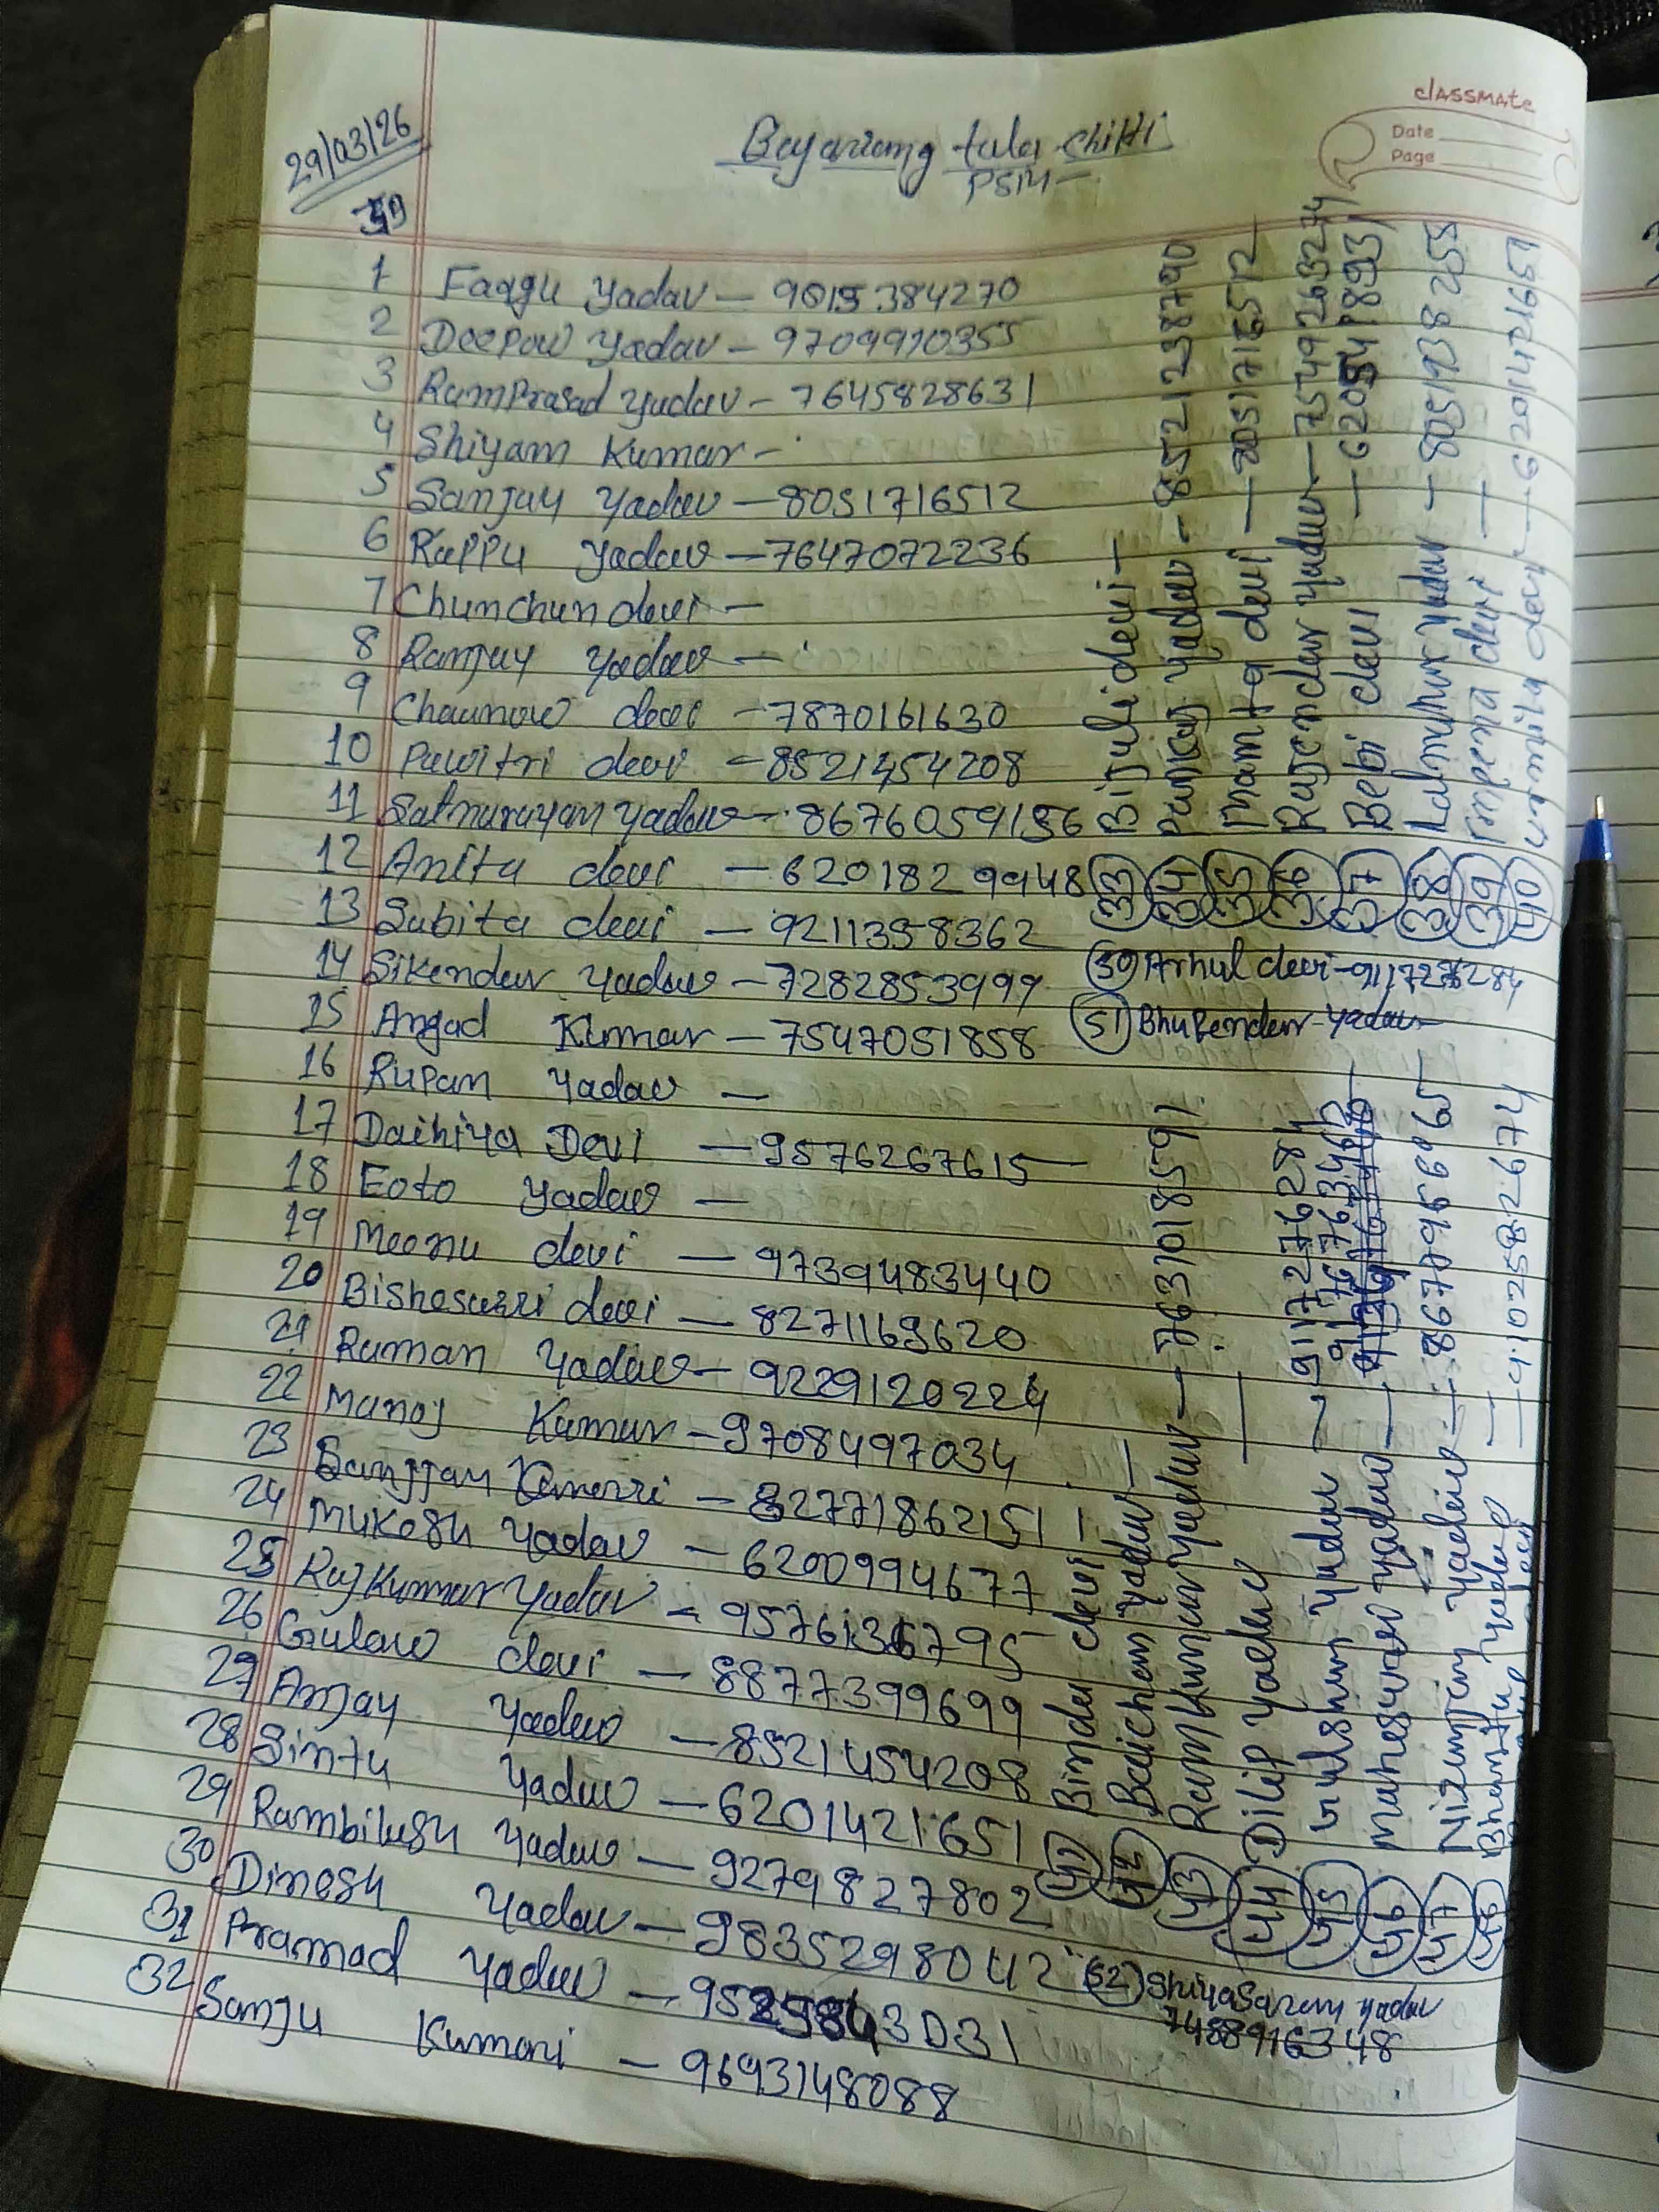 classmate
Date
Page
29/03/26
Bayarang tola chitti
PSM-
1 Faggu Yadav - 9615384270
2 Deepaw Yadav - 9709910355
3 RamPrasad Yadav - 7645828631
4 Shiyam Kumar -
5 Sanjay Yadav - 8051716512
6 Pappu Yadav - 7647072236
7 Chunchun devi -
8 Ranjay Yadav -
9 Chaunow devi - 7870161630
10 Pawitri devi - 8521454208
11 Satnarayan Yadav - 8676059156
12 Anita devi - 6201829948
13 Sabita devi - 9211358362
14 Sikendar Yadav - 7282853999
15 Angad Kumar - 7547051858
16 Rupan Yadav -
17 Daihiya Devi - 9576267615
18 Eoto Yadav -
19 Meenu devi - 9739483440
20 Bisheswari devi - 8271169620
21 Raman Yadav - 9229120224
22 Manoj Kumar - 9708497034
23 Sanjjan Kumari - 82771862151
24 Mukesh Yadav - 6200994677
25 RajKumar Yadav - 9576136795
26 Gulaw devi - 8877399699
27 Anjay Yadav - 8521454208
28 Sintu Yadav - 6201421651
29 Rambilash Yadav - 9279827802
30 Dinesh Yadav - 9835298042
31 Pramad Yadav -
32 Sanju Kumari - 9693148088
33 Bijuli devi -
34 Pankaj Yadav - 8521238790
35 Mamta devi - 8051716512
36 Rajender Yadav - 7549263274
37 Bebi devi -
38 Lalmuhar Yadav - 8051938255
39 devi -
40 Urmila devi - 6201421651
50 Arhul devi - 9117276284
51 Bhupendar Yadav
41 Binda devi -
42 Baichan Yadav -
43 RamKumar Yadav - 7631018591
44 Dilip Yadav
45 Gulshan Yadav - 9117276284
46 Maheswar Yadav -
47 Niranjan Yadav - 8677956965
48
52 Shiyasaran Yadav